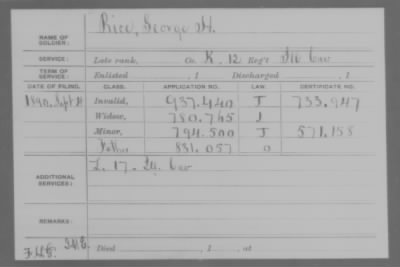 NAME OF SOLDIER: Rice, George H.
SERVICE: Late rank, Co. K, 12 Reg't Ill Cav
TERM OF SERVICE: Enlisted , 1 Discharged , 1
DATE OF FILING. CLASS. APPLICATION NO. LAW. CERTIFICATE NO.
1890, Sept 11 Invalid, 937.440 J 733.947
Widow, 780.765 J
Minor, 794.500 J 571.158
Father 831.057 O
ADDITIONAL SERVICES: L. 17. Ill. Cav
REMARKS:
Died , 1 , at